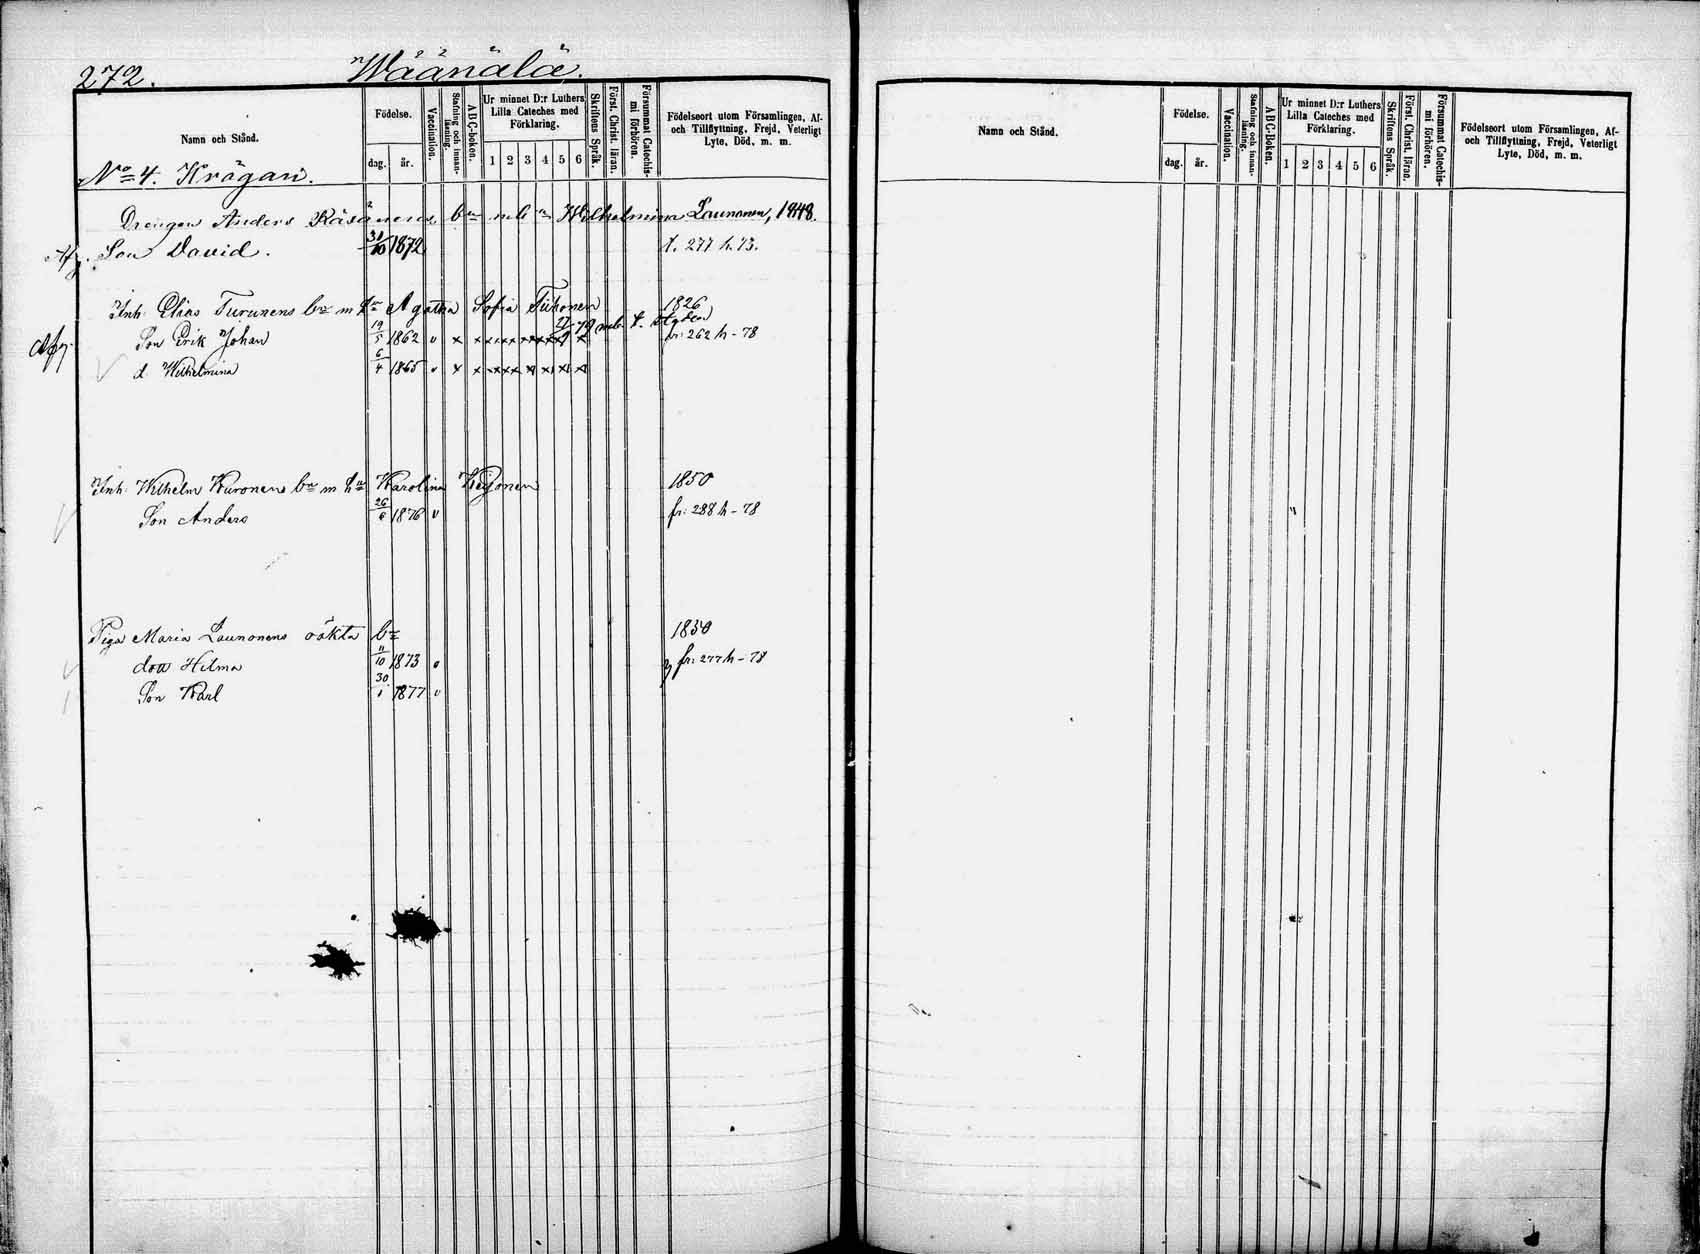 272.
Wäänälä.
Namn och Stånd.
Födelse.
dag.
år.
Vaccination.
Stafning och innan-läsning.
ABC-boken.
Ur minnet D:r Luthers Lilla Cateches med Förklaring.
1 2 3 4 5 6
Skriftens Språk.
Först. Christ. läran.
Försummat Catechis-mi förhören.
Födelseort utom Församlingen, Af-
och Tillflyttning, Frejd, Veterligt
Lyte, Död, m. m.
No 4. Krögan.
Drengen Anders Räsänens bn m h Wilhelmina Launonen, 1848.
Son David. 31/10 1872 t. 277 h. 73.
Inh: Elias Turunens bn m hu Agatha Sofia Tiihonen 1826
Son Erik Johan 19/5 1862 v x x x x x x x x x fr: 262 h - 78
d Wilhelmina 6/4 1865 v x x x x x x x x x
Inh: Wilhelm Kuronens bn m hu Karolina Keijonen 1850
Son Anders 26/6 1876 v fr: 288 h - 78
Piga Maria Launonens oäkta bn 1850
dotr Hilma 11/10 1873 v fr: 277 h - 78
Son Karl 30/1 1877 v
Namn och Stånd.
Födelse.
dag.
år.
Vaccination.
Stafning och innan-läsning.
ABC-Boken.
Ur minnet D:r Luthers Lilla Cateches med Förklaring.
1 2 3 4 5 6
Skriftens Språk.
Först. Christ. läran.
Försummat Catechis-mi förhören.
Födelseort utom Församlingen, Af-
och Tillflyttning, Frejd, Veterligt
Lyte, Död, m. m.